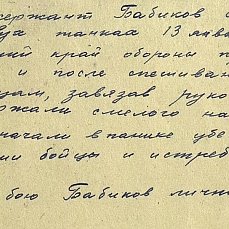 сержант Бабиков с
ух танках 13 янва
ий край обороны п
и после спешиван
цам, завязав руко
ржали смелого на
начали в панике убе
ии бойцы и истреб
бою Бабиков лично